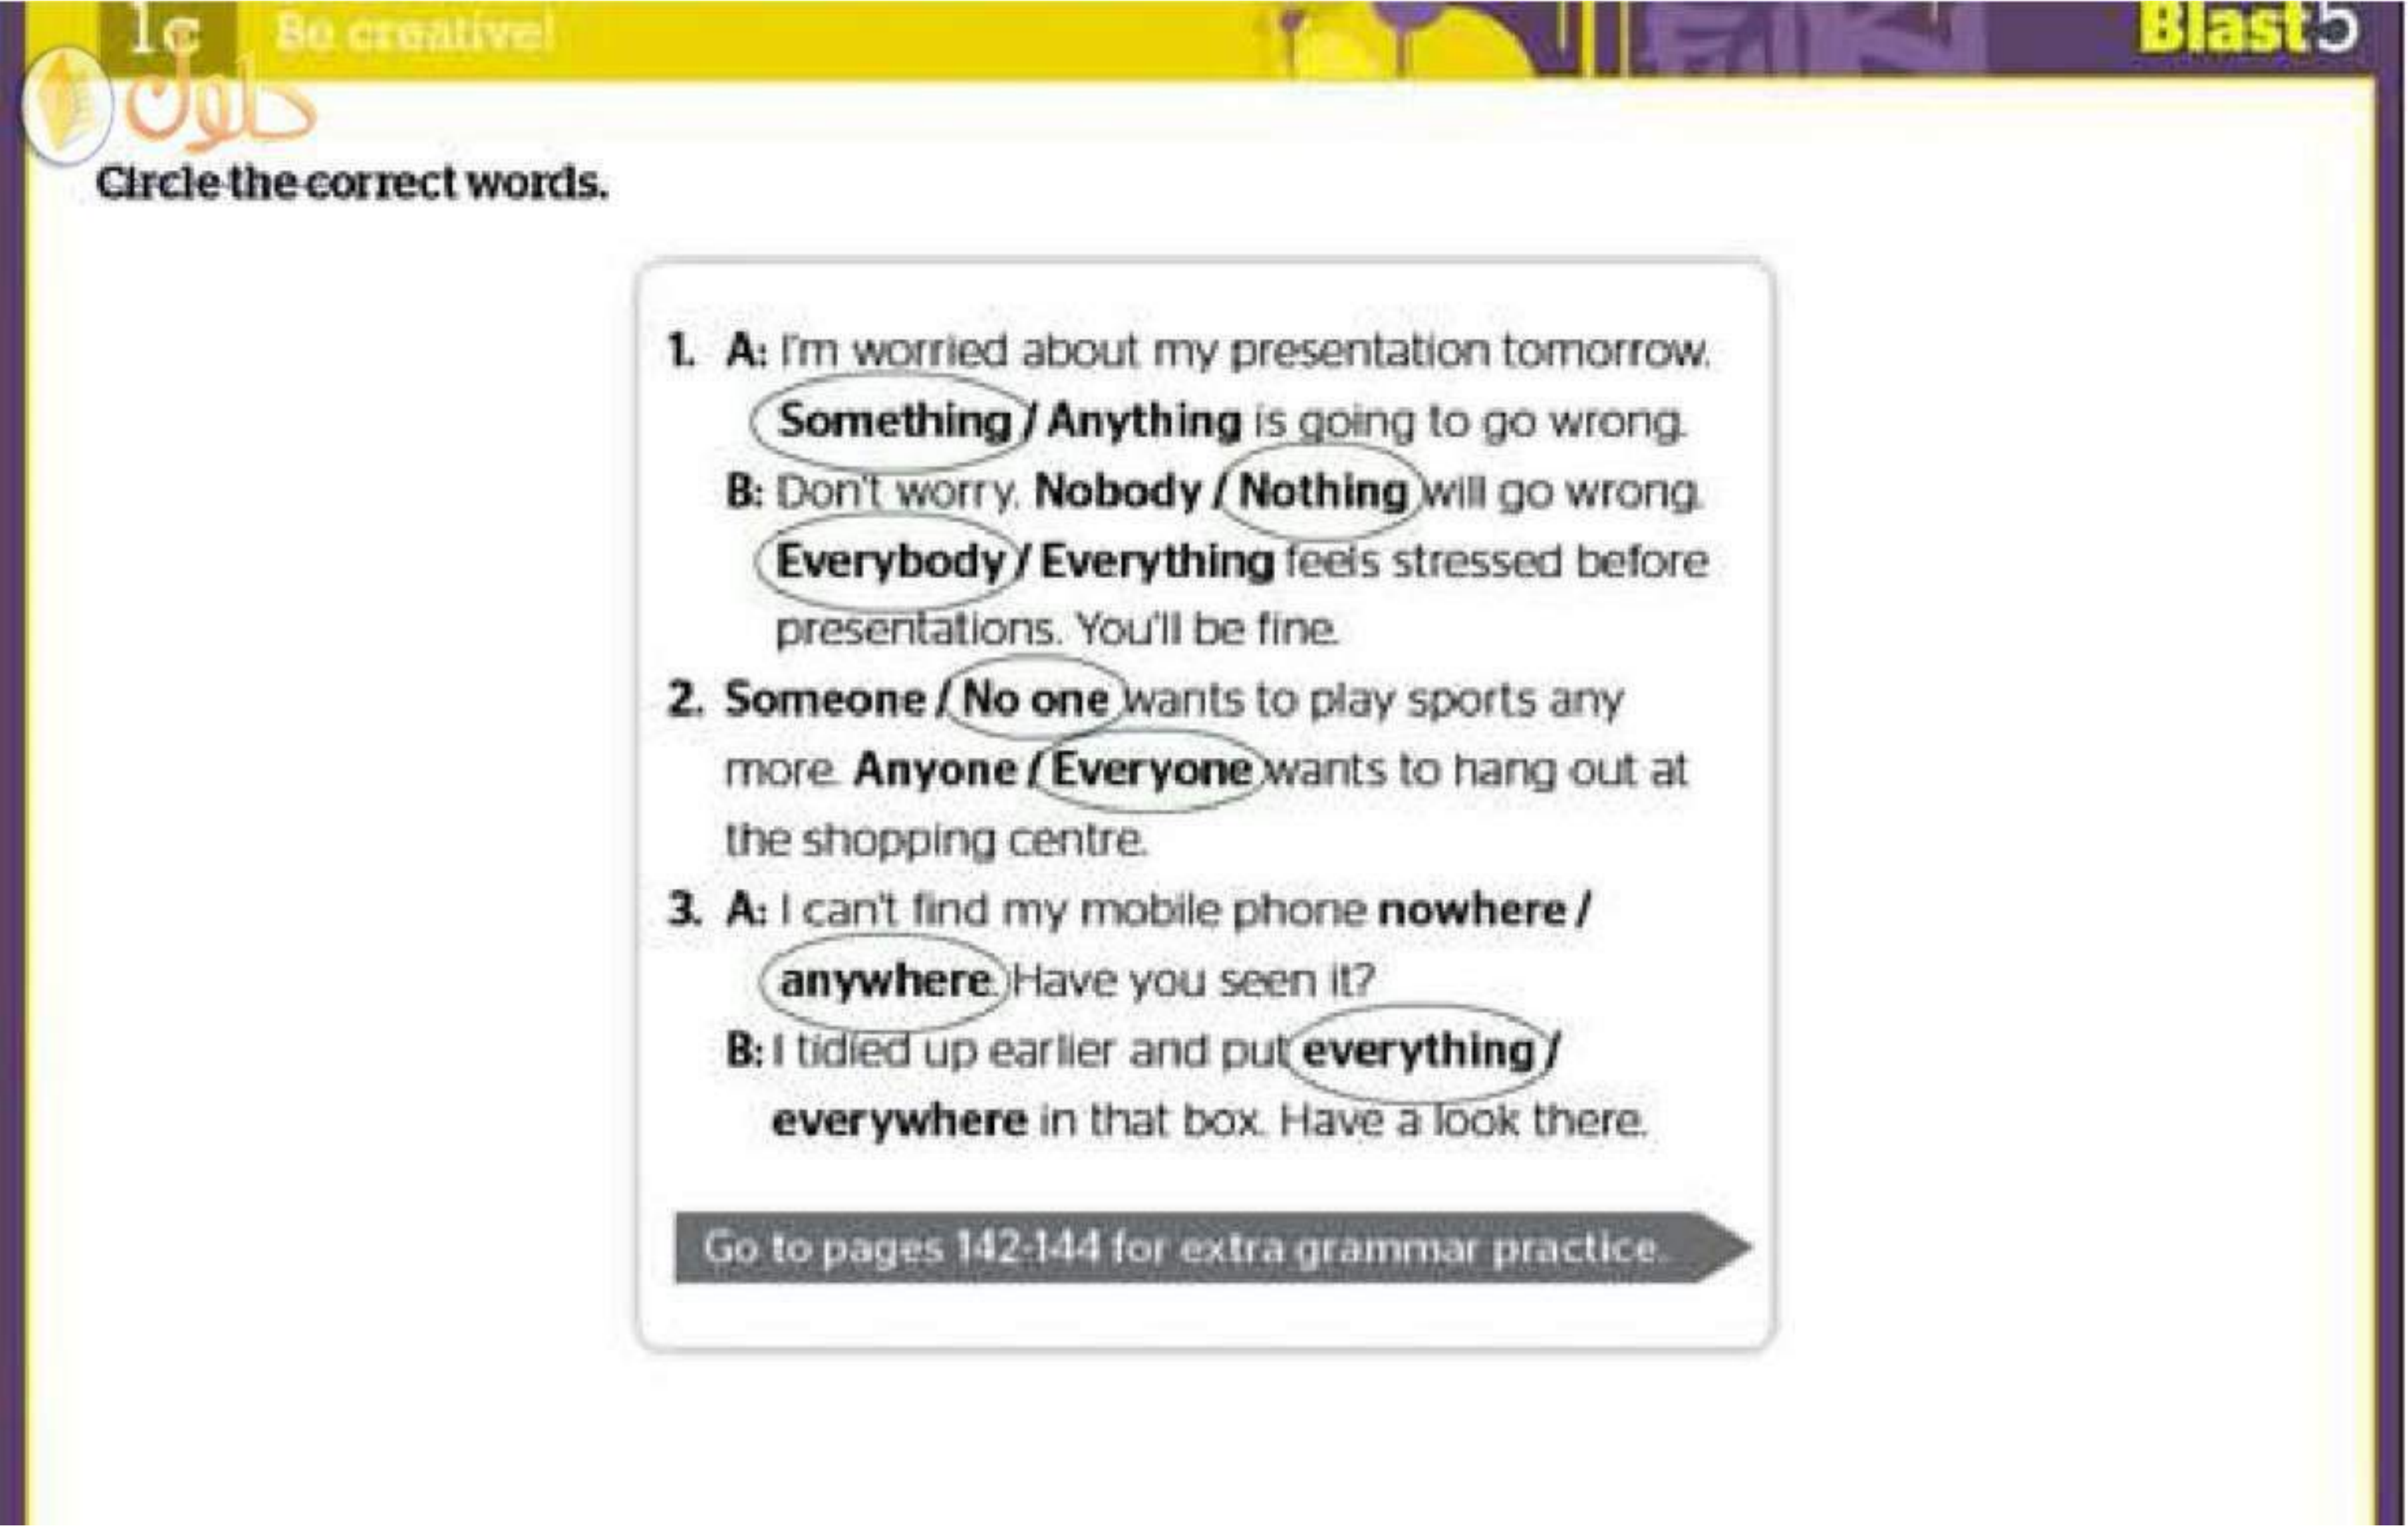 1c Be creative! Blast 5
حلول
Circle the correct words.
1. A: I'm worried about my presentation tomorrow.
Something / Anything is going to go wrong.
B: Don't worry. Nobody / Nothing will go wrong.
Everybody / Everything feels stressed before
presentations. You'll be fine.
2. Someone / No one wants to play sports any
more. Anyone / Everyone wants to hang out at
the shopping centre.
3. A: I can't find my mobile phone nowhere /
anywhere. Have you seen it?
B: I tidied up earlier and put everything /
everywhere in that box. Have a look there.
Go to pages 142-144 for extra grammar practice.